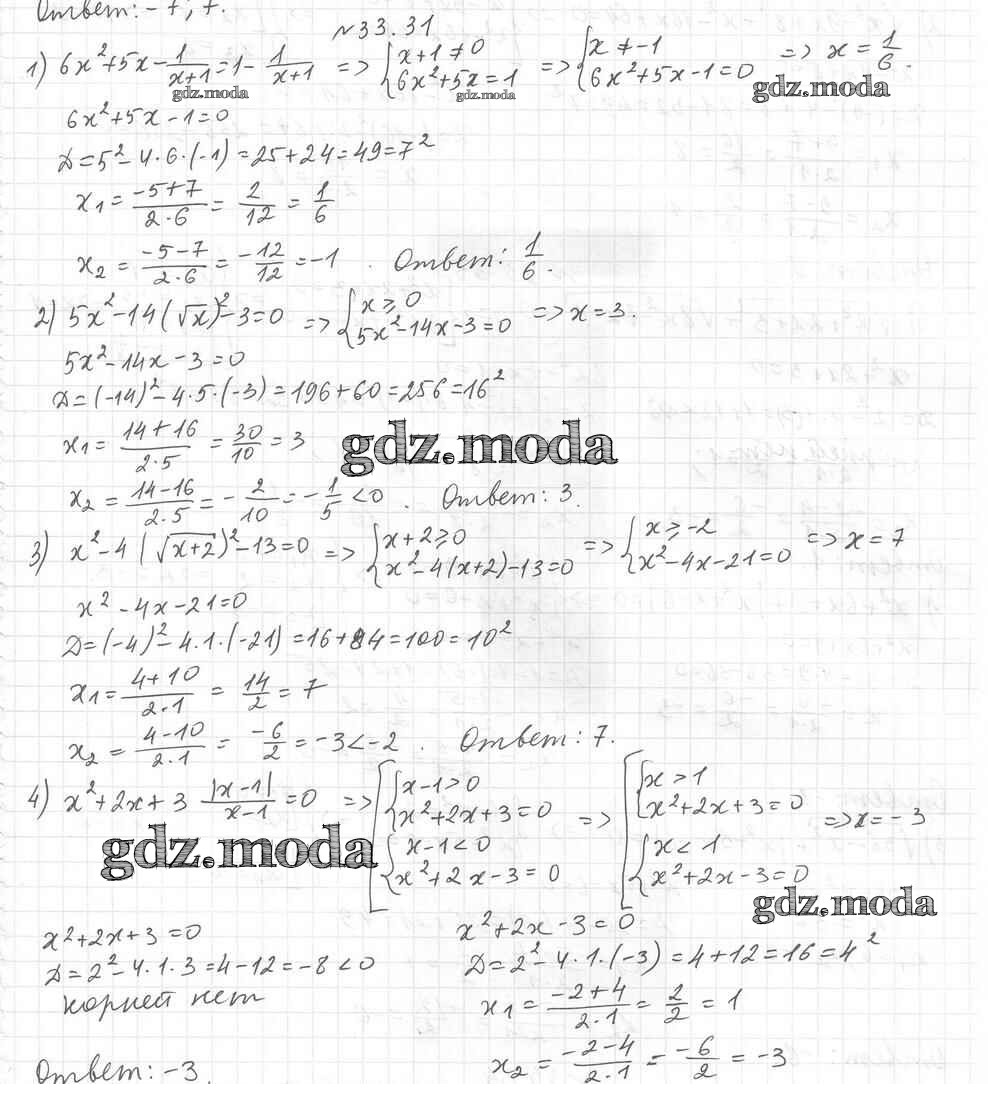 Ответ: -7; 7.
№33.31
1) 6x²+5x-1/(x+1)=1-1/(x+1) => {x+1≠0 {6x²+5x=1 => {x≠-1 {6x²+5x-1=0 => x=1/6.
gdz.moda gdz.moda gdz.moda
6x²+5x-1=0
Д=5²-4·6·(-1)=25+24=49=7²
x₁=(-5+7)/(2·6)=2/12=1/6
x₂=(-5-7)/(2·6)=-12/12=-1. Ответ: 1/6.
2) 5x²-14(√x)²-3=0 => {x⩾0 {5x²-14x-3=0 => x=3.
5x²-14x-3=0
Д=(-14)²-4·5·(-3)=196+60=256=16²
x₁=(14+16)/(2·5)=30/10=3
gdz.moda
x₂=(14-16)/(2·5)=-2/10=-1/5<0. Ответ: 3.
3) x²-4(√(x+2))²-13=0 => {x+2⩾0 {x²-4(x+2)-13=0 => {x⩾-2 {x²-4x-21=0 => x=7
x²-4x-21=0
Д=(-4)²-4·1·(-21)=16+84=100=10²
x₁=(4+10)/(2·1)=14/2=7
x₂=(4-10)/(2·1)=-6/2=-3<-2. Ответ: 7.
4) x²+2x+3 |x-1|/(x-1)=0 => [{x-1>0 {x²+2x+3=0 {x-1<0 {x²+2x-3=0 => [{x>1 {x²+2x+3=0 {x<1 {x²+2x-3=0 => x=-3
gdz.moda
gdz.moda
x²+2x+3=0
Д=2²-4·1·3=4-12=-8<0
корней нет
x²+2x-3=0
Д=2²-4·1·(-3)=4+12=16=4²
x₁=(-2+4)/(2·1)=2/2=1
x₂=(-2-4)/(2·1)=-6/2=-3
Ответ: -3.